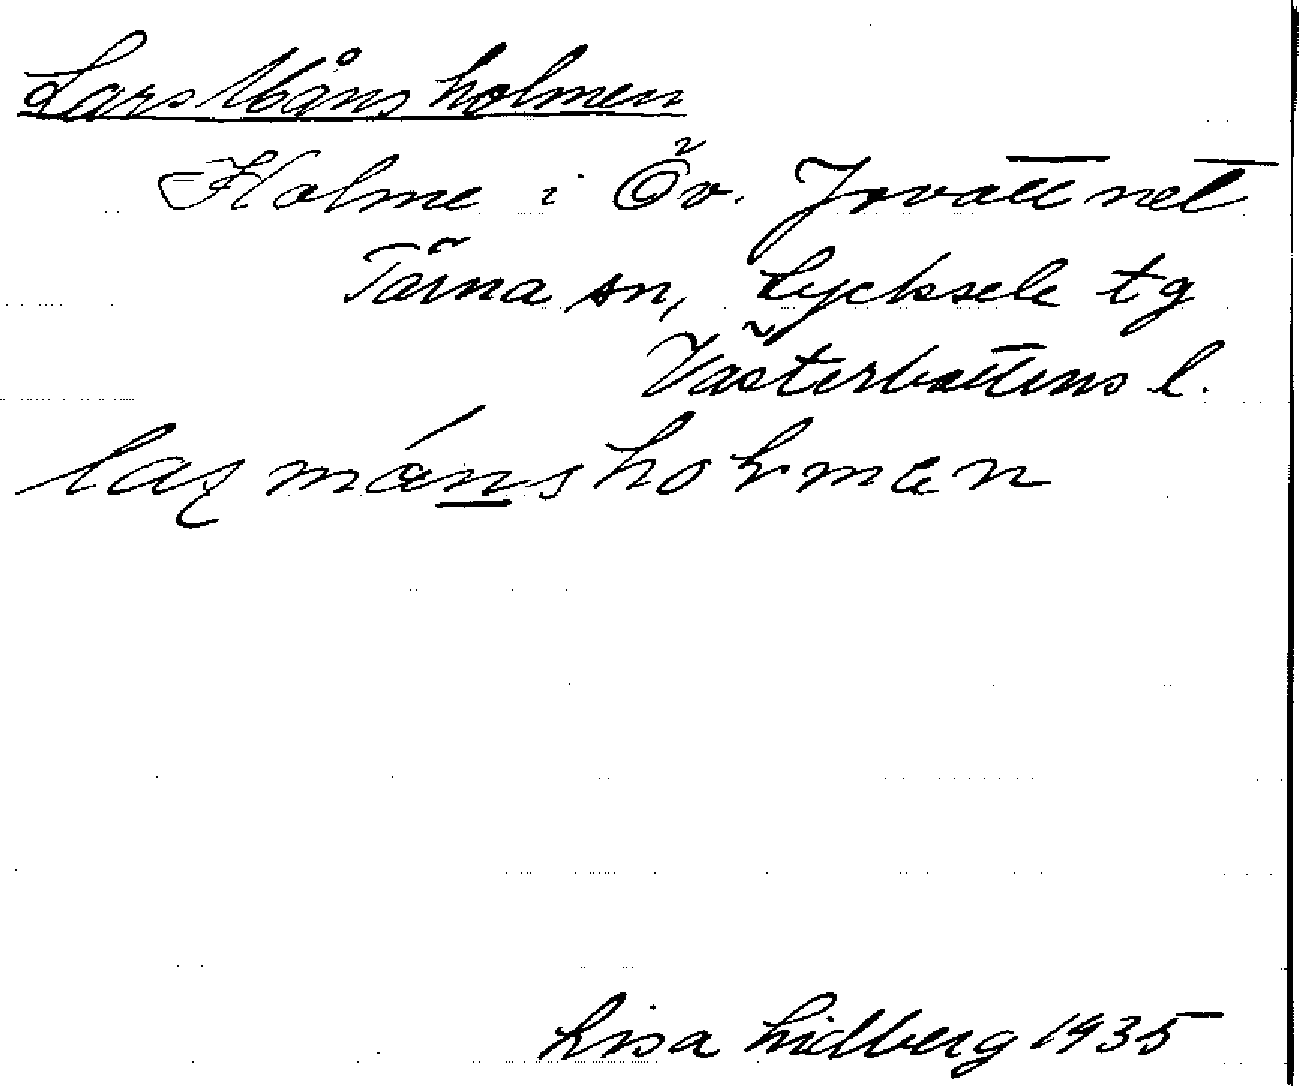 Lars Månsholmen
Holme i Öv. Jovattnet
Tärna sn, Lycksele tg
Västerbottens l.
månsholmen
Lisa Lidberg 1935